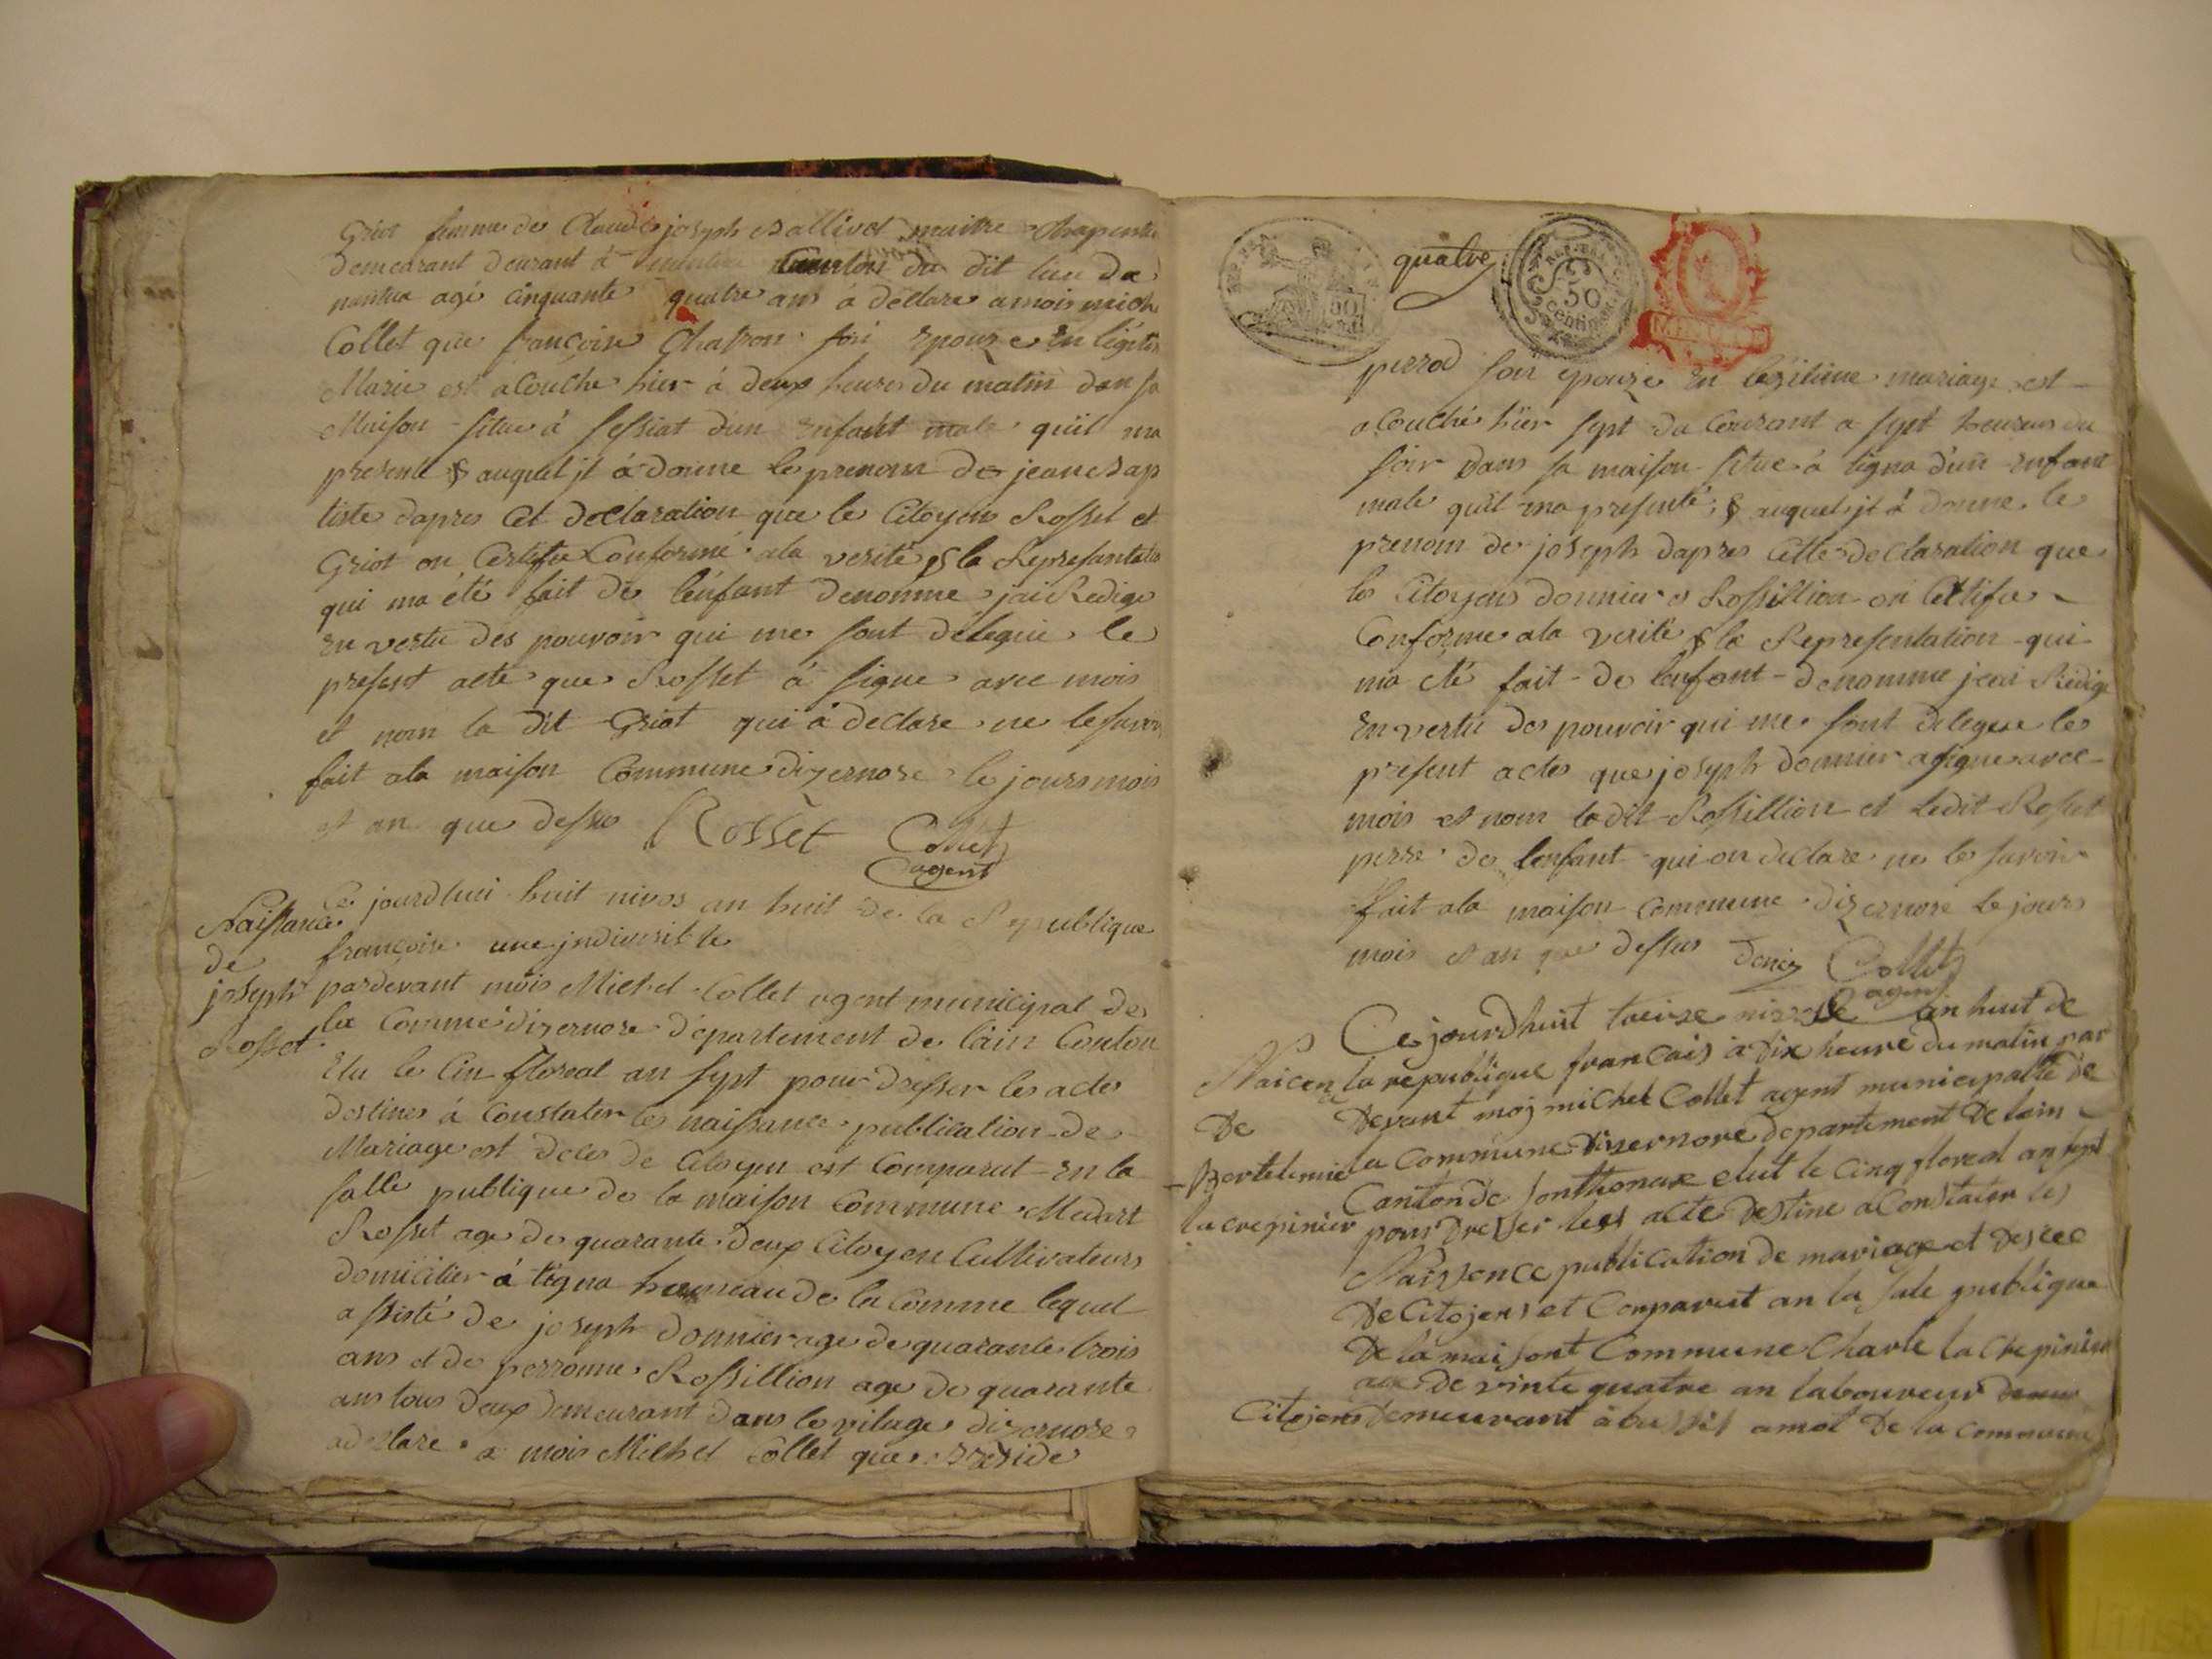 Griot femme de Claude joseph Ballivet maitre Chapentie
demeurant deurant à Canton du dit lieu de
nantua agé cinquante quatre ans à declare a mois mich
Collet que francoise Chatron son epouze en ligitim
Marie est acouche hier à deux heures du matin dan sa
Maison situe à sessiat dun enfant male quil ma
presente & auquel jl à donne le prenom de jean Bap
tiste dapres Cet declaration que le Citoyens Rosset et
Griot on Certifie Conforme ala verite & la Represantation
qui ma été fait de lenfant denomme jai Redige
en vertu des pouvoir qui me sont delegue le
present acte que Rosset à signe avec mois
et nom la dit Griot qui à declare ne le savoir
fait ala maison Commune dizernore le jours mois
et an que dessus Rosset Collet
agent
Naissance
de
joseph
Rosset
Ce jourdhui huit nivos an huit de la Republique
françoise une jndivisible
pardevant mois Michel Collet agent municipal de
la Comme dizernore departement de lain Canton
Elu le Cin floreal an sept pour dresser les actes
destines à Constater les naissance publication de
Mariage et deces de Citoyen est Comparut en la
salle publique de la maison Commune Medart
Rosset age de quarante deux Citoyen Cultivateurs
domicilier à tigna hameau de la Comme lequel
assisté de joseph donnier age de quarante trois
ans et de perronne Rossillion age de quarante
ans tous deux demeurant dans le vilage dizernore
adeclare a mois Michel Collet que
quatre
REP. FRA. 50 centimes
perrod son epouze en legitime mariage est
acouché hier sept du Courant a sept heures du
soir dans sa maison situe à tigna d'un enfant
male quil ma presenté & auquel jl à donne le
prenom de joseph dapres Cette declaration que
les Citoyens donnier & Rossillion on Certifie
Conforme ala verité & la Representation qui
ma été fait de lenfant denomme jeai Redige
en vertu des pouvoir qui me sont delegue le
present actes que joseph donnier a signe avec
mois et nom la dit Rossillion et ledit Rosset
perre de lenfant qui on declare ne le savoir
fait ala maison Commune dizernore le jours
mois et an que dessus Collet
agent
Naicence
De
Bertelemie
la crepinier
Ce jourdhuit treize nivose an huit de
la republique francais à dix heure du matin par
Devant moj michel Collet agent municipalle de
la Commune Dizernore departement De lain
Canton de sonthonax elut le Cinq floreal an sept
pour dresser les acte destine a Constater les
Naissence publication de mariage et desces
De Citojens et Comparut an la sale publique
De la maisont Commune Charle la Crepinier
age De vinte quatre an laboureur
Citojens demeurant à amot De la commune